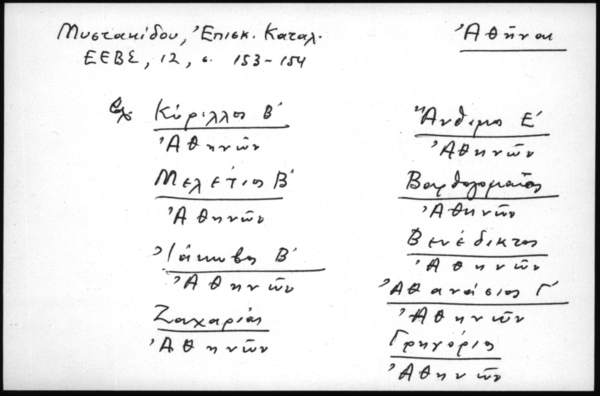 Μυστακίδου, Ἐπισκ. Καταλ.
ΕΕΒΣ, 12, σ. 153-154
Ἀθῆναι
Κύριλλος Β΄
Ἀθηνῶν
Μελέτιος Β΄
Ἀθηνῶν
Ἰάκωβος Β΄
Ἀθηνῶν
Ζαχαρίας
Ἀθηνῶν
Ἄνθιμος Ε΄
Ἀθηνῶν
Βαρθολομαῖος
Ἀθηνῶν
Βενέδικτος
Ἀθηνῶν
Ἀθανάσιος Γ΄
Ἀθηνῶν
Γρηγόριος
Ἀθηνῶν